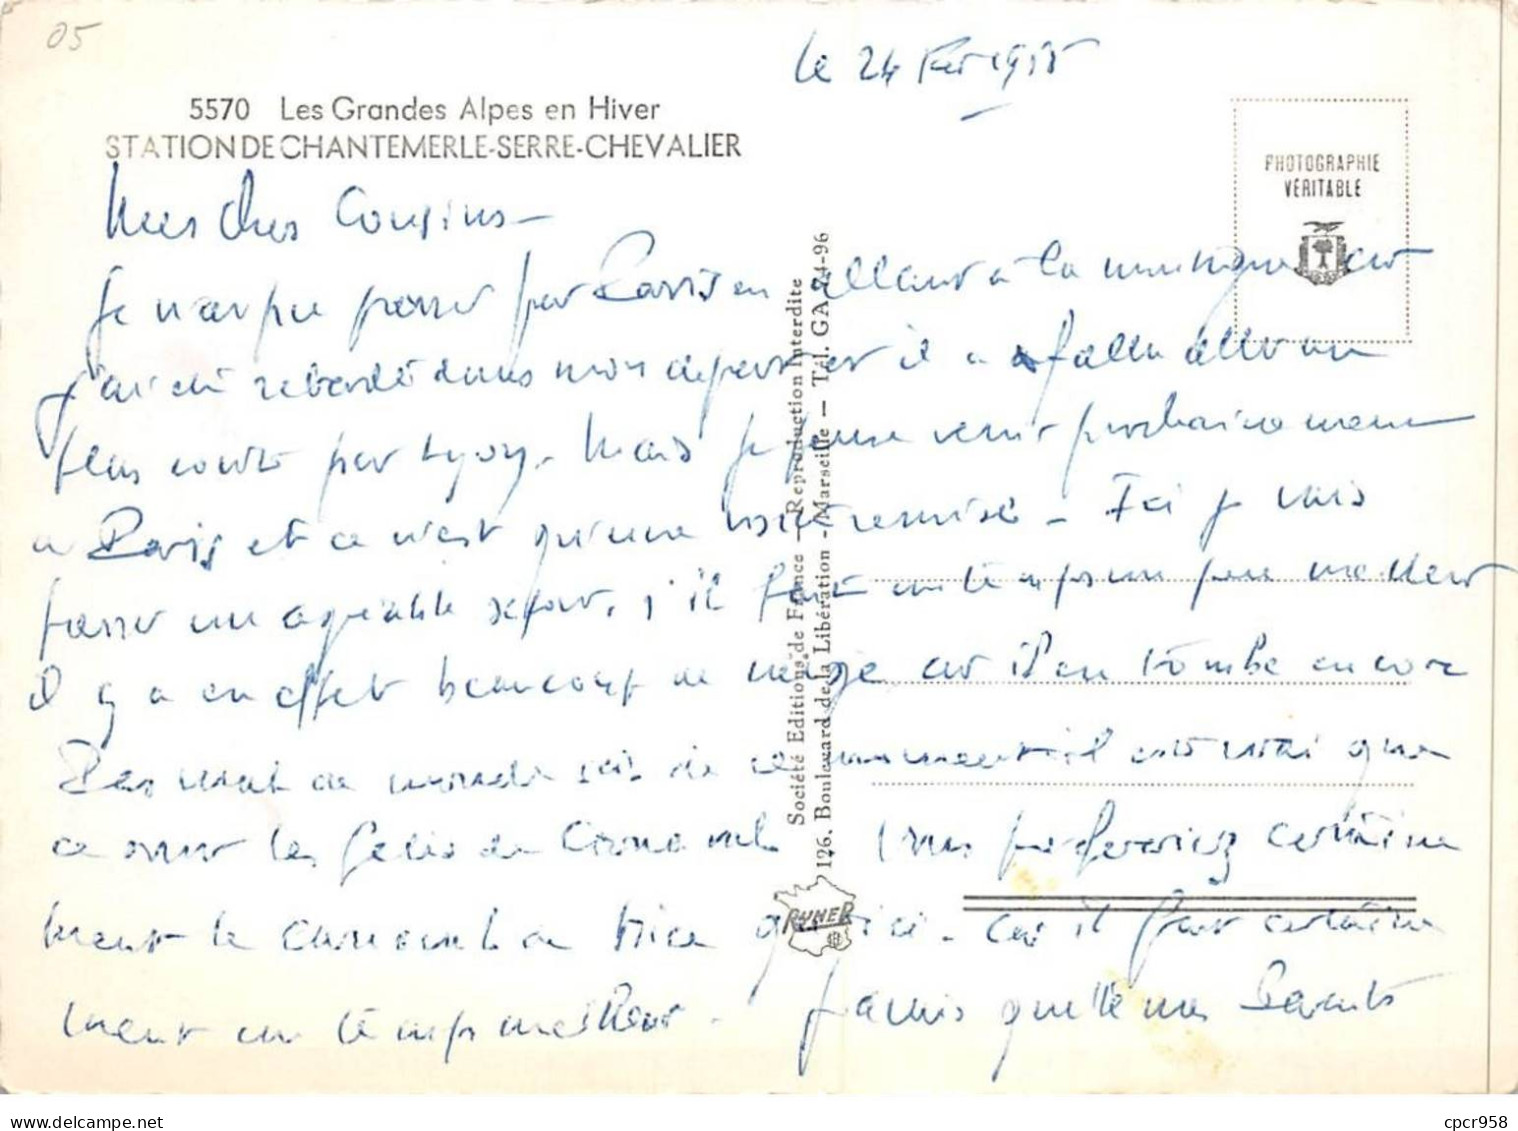 05
le 24 Fev 1955
5570 Les Grandes Alpes en Hiver
STATION DE CHANTEMERLE-SERRE-CHEVALIER
PHOTOGRAPHIE
VÉRITABLE
Mes chers Cousins -
Je n'ai pu passer par Paris en allant à la montagne car
j'ai été retardé dans mon départ et il a fallu aller au
plus court par Lyon. Mais je pense venir prochainement
à Paris et ce n'est qu'une visite remise - Ici je vais
passer un agréable séjour, s'il fait un temps un peu meilleur
il y a en effet beaucoup de neige car il en tombe encore
Pas mal de monde ici en ce moment il est vrai que
ce sont les fêtes du Carnaval Vous préfèreriez certaine
ment le carnaval de Nice qu'ici - Car il fait certaine
ment un temps meilleur - J'avais quitté mes Parents
Société Editions de France — Reproduction Interdite
126, Boulevard de la Libération - Marseille — Tél. GA. 24-96
RYNER
cpcr958